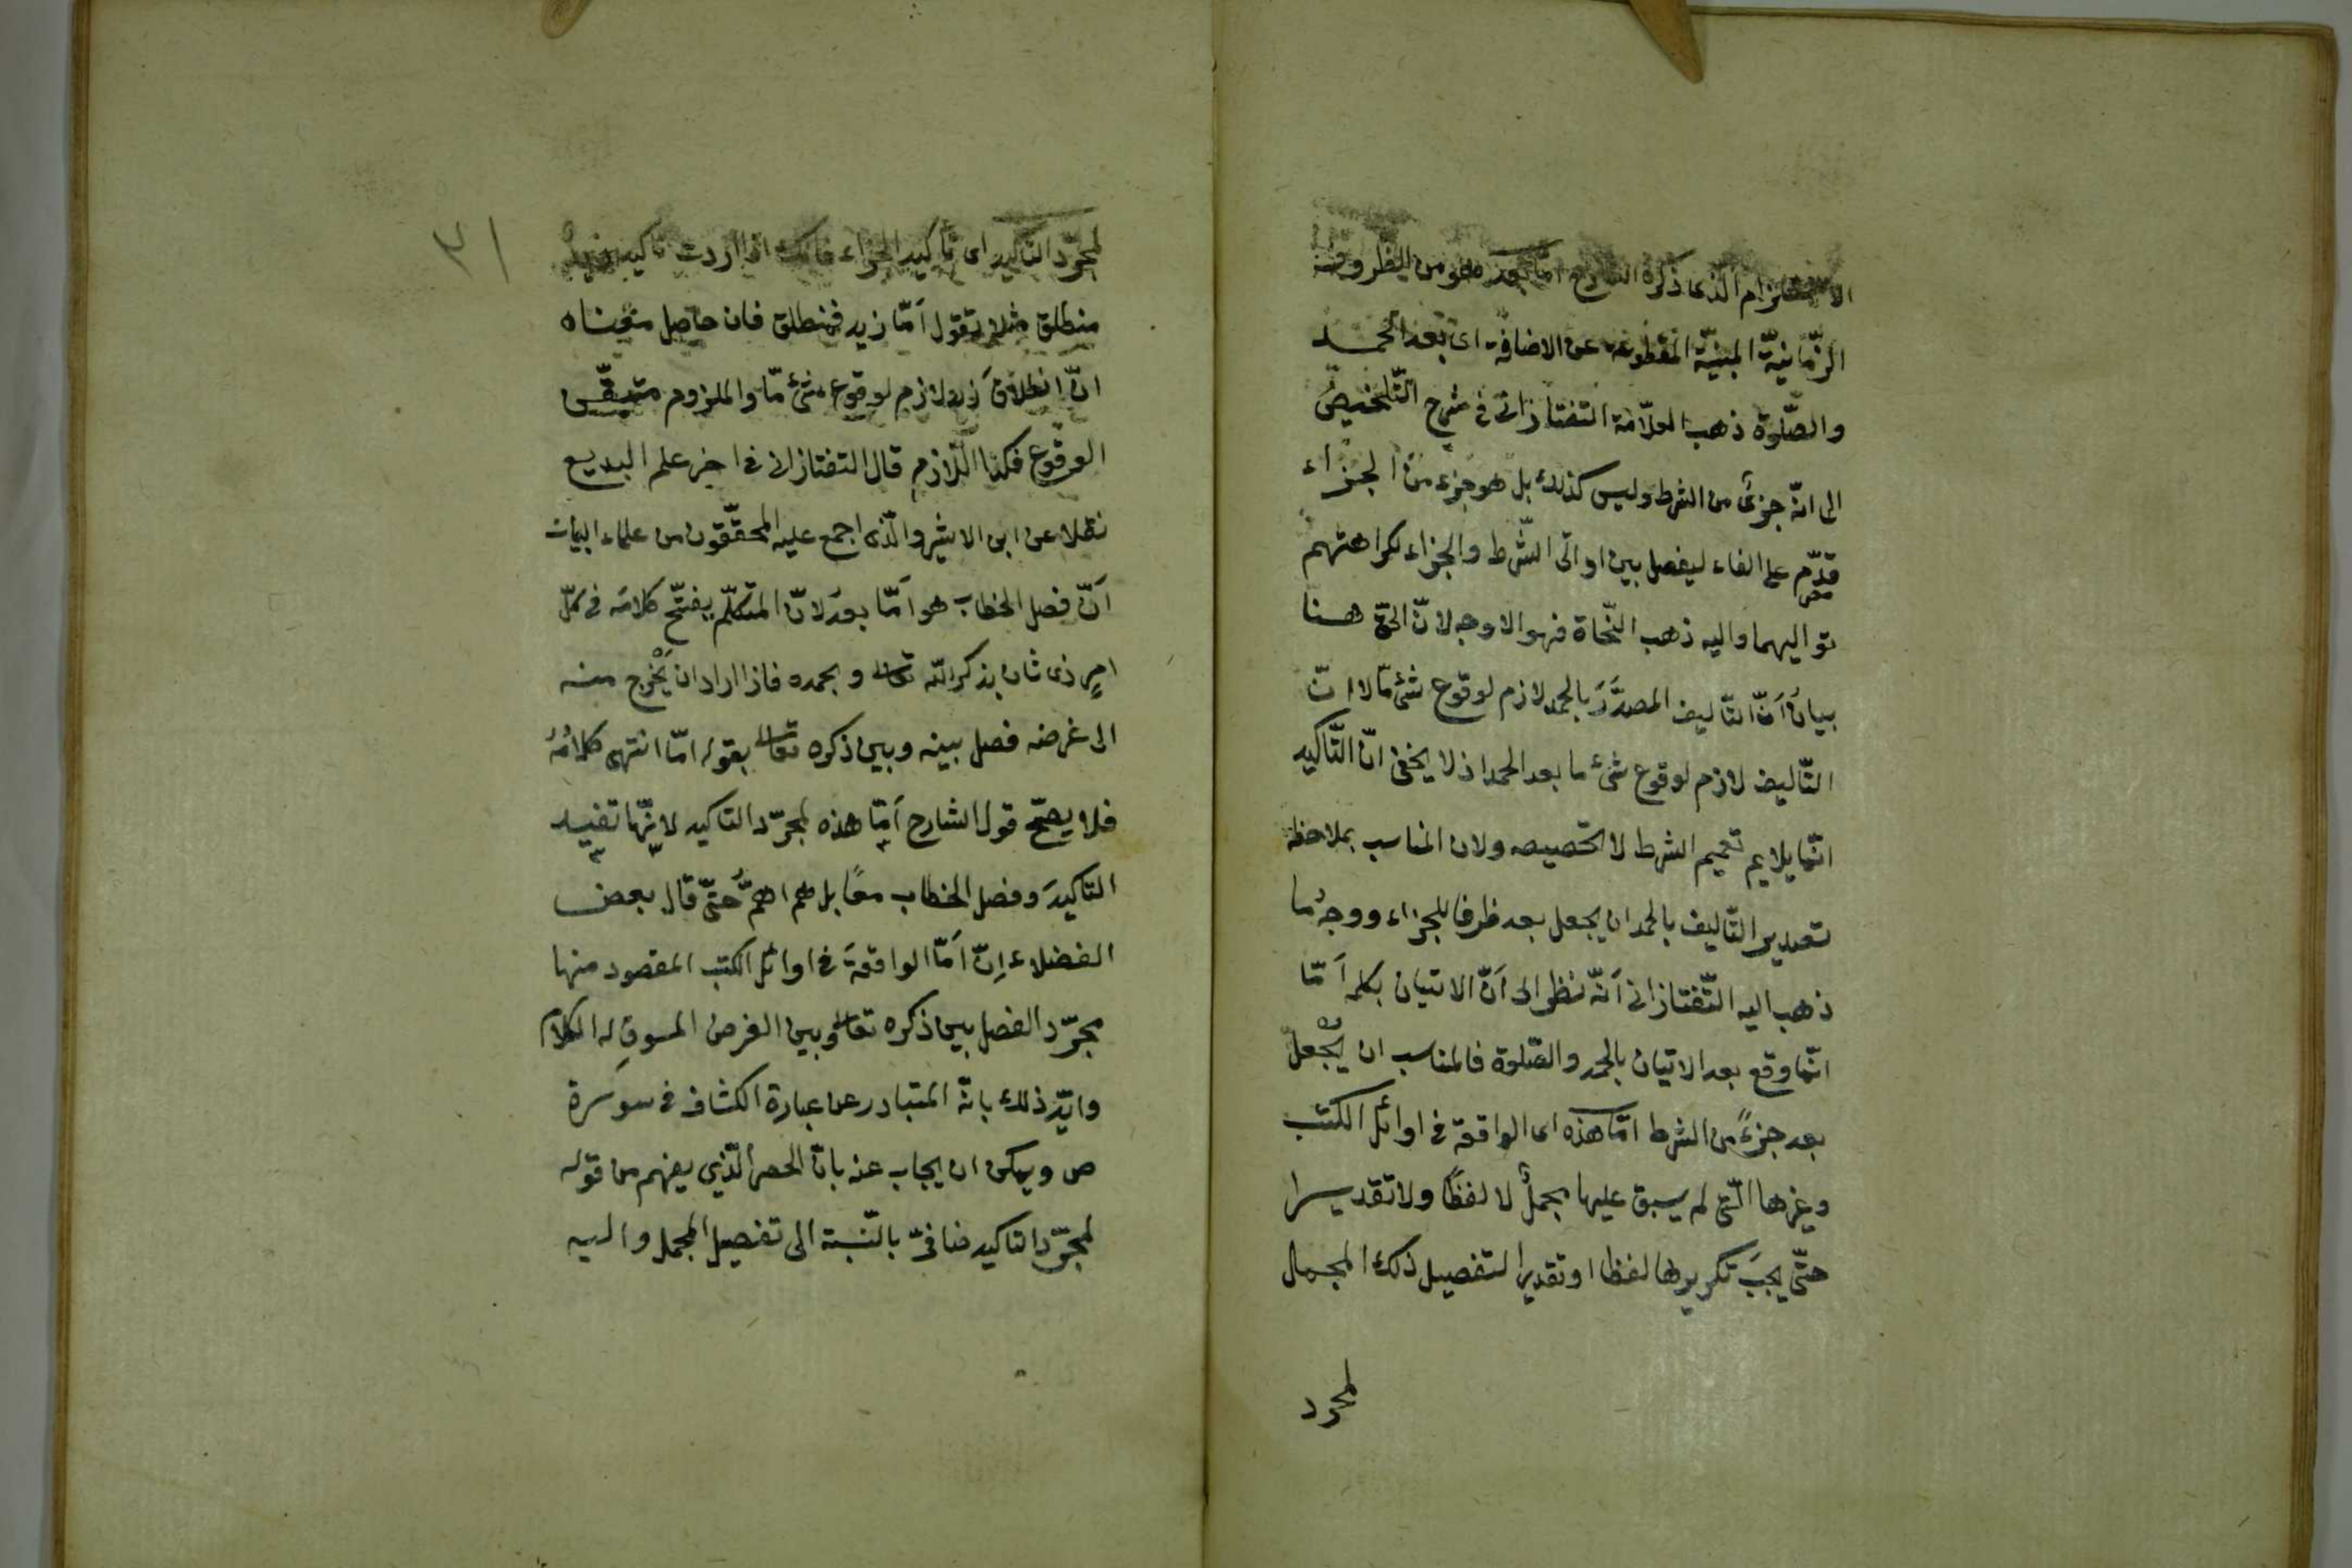 الذى ذكره الشارح امّا بعد هو من الظروف
الزّمانيّة المبنيّة المقطوعة عن الاضافة اى بعد الحمد
والصّلوة ذهب العلاّمة التفتازانى فى شرح التّلخيص
الى انّه جزئ من الشرط وليس كذلك بل هو جزء من الجزاء
قدّم على الفاء ليفصل بين اداتى الشّرط والجزاء لكراهتهم
تواليهما واليه ذهب النّحاة فهو الاوجه لانّ الحقّ هنا
بيانُ اَنّ التّاليف المصدَّرَ بالحمد لازم لوقوع شئ مّا لا انّ
التّاليف لازم لوقوع شئ ما بعد الحمد اذ لا يخفى انّ التّأكيد
انّما يلايم تعميم الشرط لا تخصيصه ولان المناسب بملاحظة
تصدير التّاليف بالحمد ان يجعل بعد ظرفا للجزاء ووجهُ ما
ذهب اليه التّفتازانى اَنّه نظر الى اَنّ الاتيان بكلمة اَمّا
انّما وقع بعد الاتيان بالحمد والصّلوة فالمناسب ان يُجْعل
بعد جزءً من الشرط امّا هذه اى الواقعة فى اوائل الكتب
وغيرها الّتى لم يسبق عليها مجملٌ لا لفظًا ولا تقديرا
حتّى يجبَ تكريرها لفظا او تقديرا لتفصيل ذلك المجمل
لمجرد
لمجرّد التاكيد اى تأكيد الجزاء فانك اذا اردت تاكيد
منطلق مثلا تقول اَمّا زيد فمنطلق فان حاصل معناه
انّ انطلاقَ زيد لازم لوقوع شئ مّا والملزوم متيقّن
الوقوع فكذا اللّازم قال التفتازانى فى اخر علم البديع
نقلا عن ابن الاثير والّذى اجمع عليه المحقّقون من علماء البيان
اَنّ فصل الخطاب هو اَمّا بعدُ لانّ المتكلّم يفتتح كلامَه فى كلّ
امرٍ ذى شان بذكر اللّه تعالى وبحمده فاذا اراد ان يَخْرج منه
الى غرضه فصل بينه وبين ذكره تعالى بقوله امّا انتهى كلامُهُ
فلا يصحّ قول الشارح اَمّا هذه لمجرّد التاكيد لانّها تفيد
التاكيدَ وفصل الخطاب معًا بل هم اهمُّ حتّى قال بعض
الفضلاء اِنّ اَمّا الواقعةَ فى اوائل الكتب المقصود منها
مجرّد الفصل بين ذكره تعالى وبين الغرض المسوقِ له الكلامُ
وايّد ذلك بانّه المتبادر عن عبارة الكشاف فى سورة
ص ويمكن ان يجاب عنه بانّ الحصر الّذي يفهم من قوله
لمجرّد التاكيد ضافىّ بالنّسبة الى تفصيل المجمل واليه
٣١